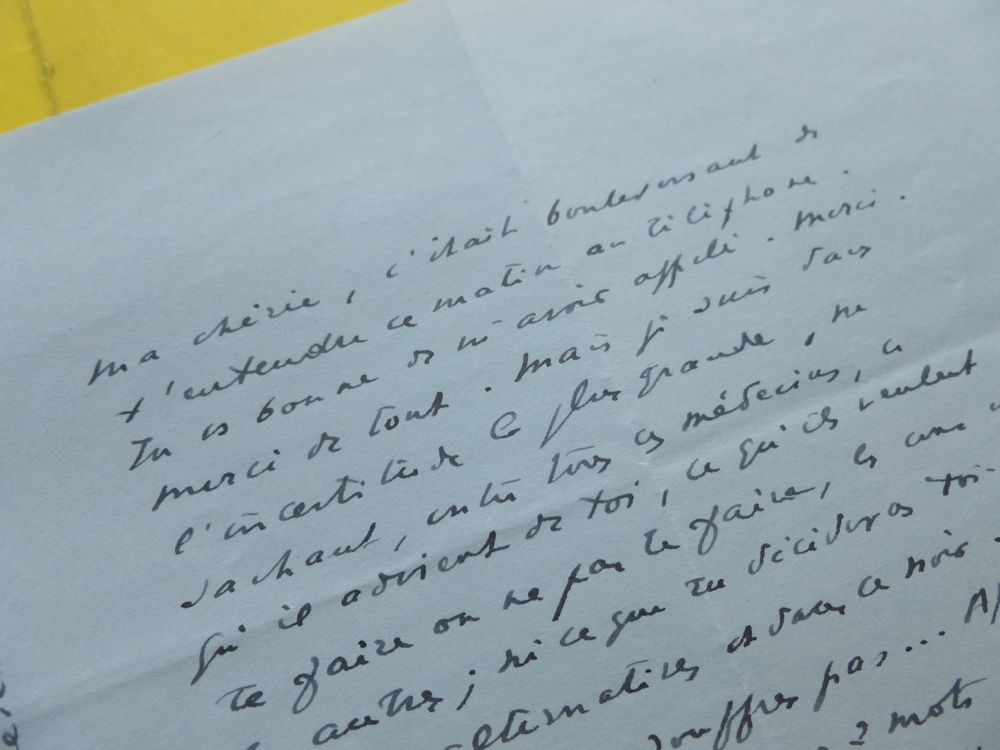 ma chérie, c'était bouleversant de
t'entendre ce matin au téléphone.
Tu es bonne de m'avoir appelé. Merci.
merci de tout. Mais je suis dans
l'incertitude la plus grande, ne
sachant, entre tous ces médecins, ce
qu'il advient de toi, ce qu'ils veulent
te faire ou ne pas te faire, les uns
autres; ni ce que tu décideras toi-
alternatives et dans ce noir.
souffres pas... 
2 mots